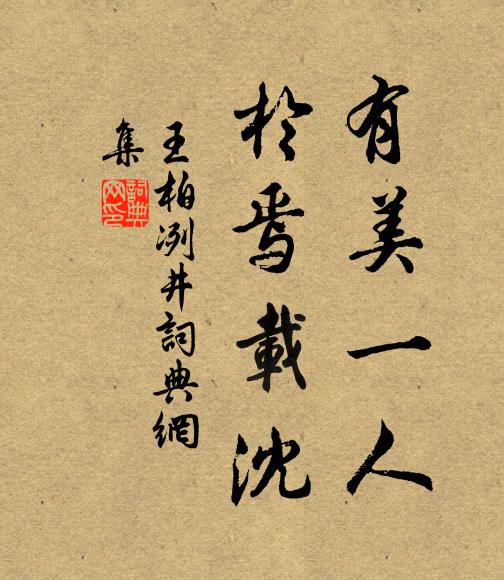 有美一人
於焉載沈
王柏冽井詞典網
集
詞典网印